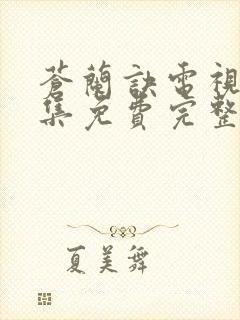 蒼蘭訣電視
集免費完整
夏美舞